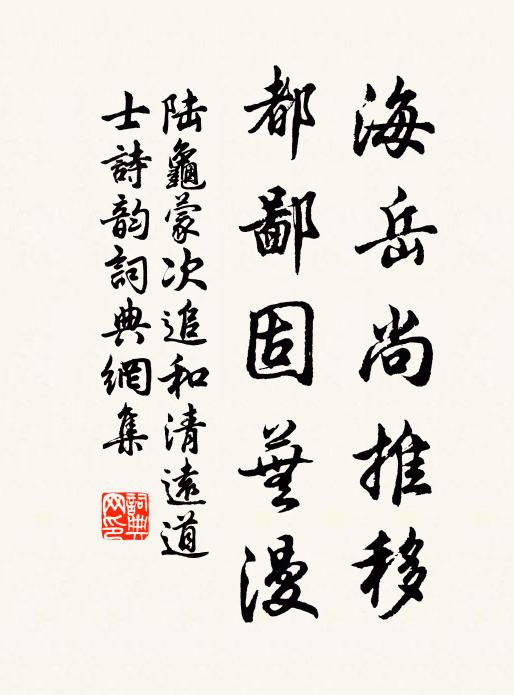 海岳尚推移
都鄙固蕪漫
陆龜蒙次追和清遠道
士詩韵詞典網集
詞典网印